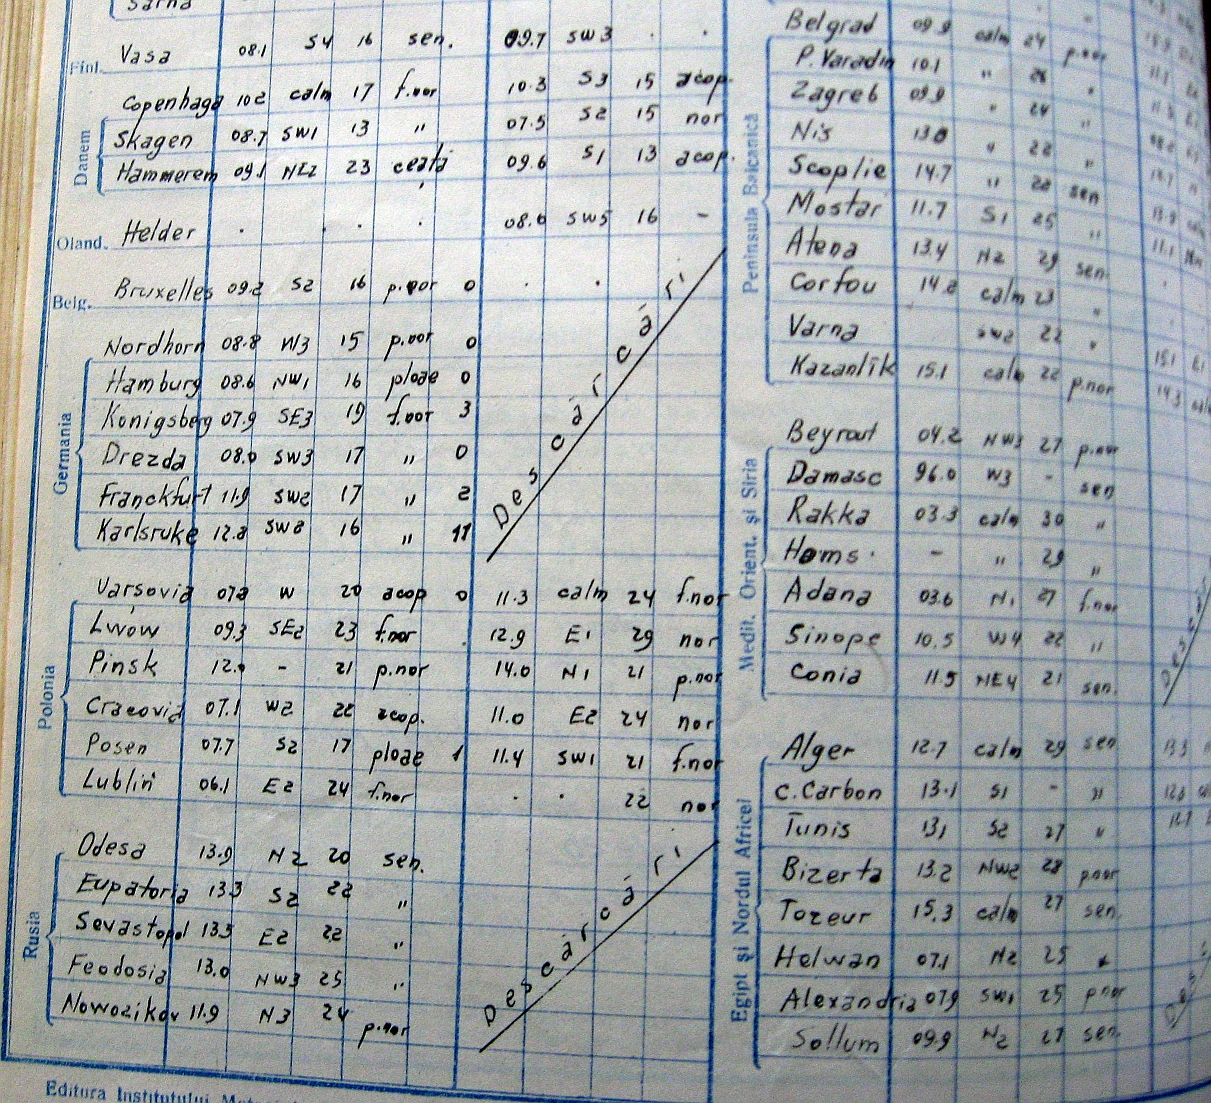 Sarna
Finl.
Vasa 08.1 S4 16 sen. 09.7 SW3 . .
Danem
Copenhaga 10.2 calm 17 f.nor 10.3 S3 15 acop.
Skagen 08.7 SW1 13 " 07.5 S2 15 nor
Hammerem 09.1 NE2 23 ceată 09.6 S1 13 acop.
Oland.
Helder . . . . 08.0 SW5 16 -
Belg.
Bruxelles 09.2 S2 16 p.nor 0 . .
Germania
Nordhorn 08.8 N3 15 p.nor 0
Hamburg 08.6 NW1 16 ploae 0
Konigsberg 07.9 SE3 19 f.nor 3
Drezda 08.0 SW3 17 " 0
Franckfurt 11.9 SW2 17 " 2
Karlsruke 12.2 SW2 16 " 11
Descărcări
Polonia
Varsovia W 20 acop 0 11.3 calm 24 f.nor
Lwów 09.3 SE2 23 f.nor . 12.9 E1 29 nor
Pinsk 12.0 - 21 p.nor 14.0 N1 21 p.nor
Cracovia 07.1 W2 22 acop. 11.0 E2 24 nor
Posen 07.7 S2 17 ploae 1 11.4 SW1 21 f.nor
Lublin 06.1 E2 24 f.nor . . 22 nor
Rusia
Odesa 13.9 N2 20 sen.
Eupatoria 13.3 S2 22 "
Sevastopol 13.5 E2 22 "
Feodosia 13.0 NW3 25 "
11.9 N3 24 p.nor
Descărcări
Editura Institutului
Peninsula Balcanică
Belgrad 09.9 calm 24 p.nor
P. Varadin 10.1 " 26 "
Zagreb 09.9 " 24 "
Nis 13.0 " 22 "
Scoplie 14.7 " 22 sen
Mostar 11.7 S1 25 "
Atena 13.4 N2 29 sen.
Corfou 14.2 calm 23 "
Varna SW2 22 "
Kazanlîk 15.1 calm 22 p.nor
Medit. Orient. și Siria
Beyrout 04.2 NW3 27 p.nor
Damasc 96.0 W3 - sen
Rakka 03.3 calm 30 "
Homs - " 29 "
Adana 03.6 N1 27 f.nor
Sinope 10.5 W4 22 "
Conia 11.5 NE4 21 sen.
Egipt și Nordul Africei
Alger 12.7 calm 29 sen
C. Carbon 13.1 S1 - "
Tunis 13.1 S2 27 "
Bizerta 13.2 NW2 28 p.nor
Tozeur 15.3 calm 27 sen.
Helwan 07.1 N2 25
Alexandria 07.9 SW1 25 p.nor
Sollum 09.9 N2 27 sen.